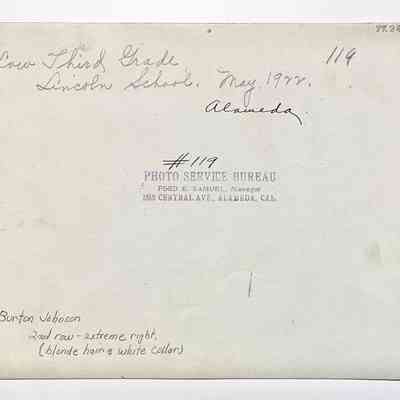 Low Third Grade
119
Lincoln School. May, 1922.
Alameda.
#119
PHOTO SERVICE BUREAU
FRED E. SAMUEL, Manager
CENTRAL AVE., ALAMEDA, CAL.
Burton Johnson
2nd row - extreme right.
(blonde hair & white collar)